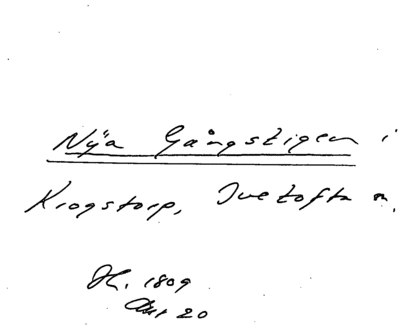 Nya Gångstigen i
Krogstorp, Ivetofta n.
H. 1809
20